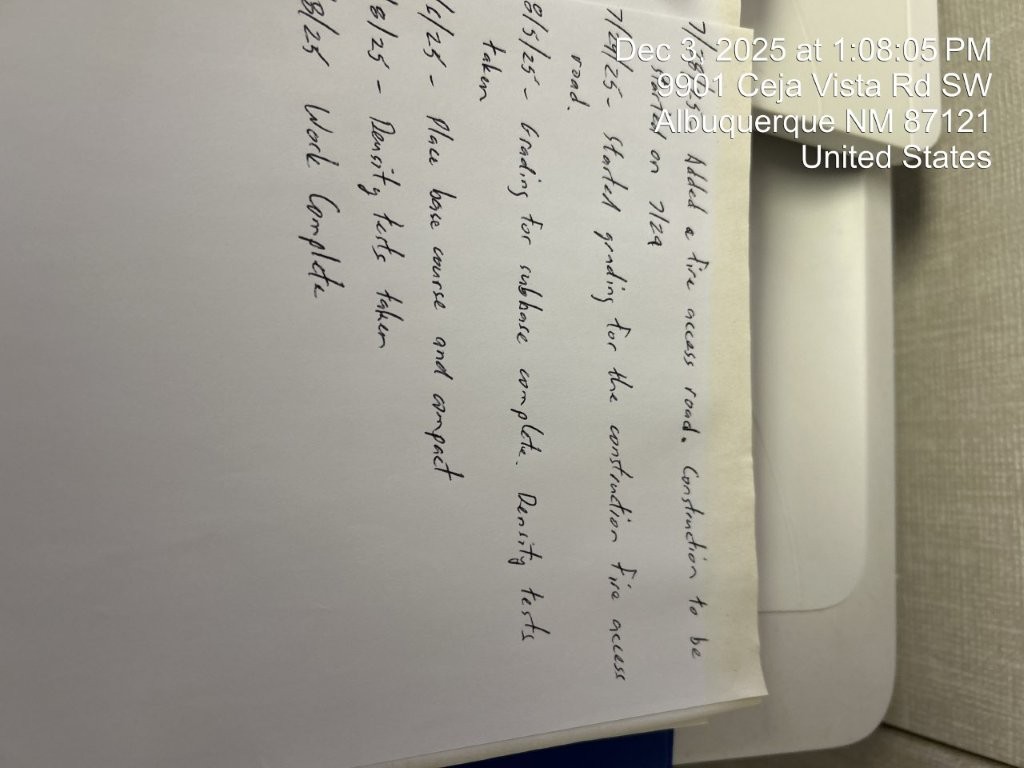 Dec 3, 2025 at 1:08:05 PM
9901 Ceja Vista Rd SW
Albuquerque NM 87121
United States
Added a fire access road. Construction to be
started on 7/29
7/29/25 - Started grading for the construction fire access
road.
8/5/25 - Grading for subbase complete. Density tests
taken
/25 - Place base course and compact
/8/25 - Density tests taken
8/25 Work Complete